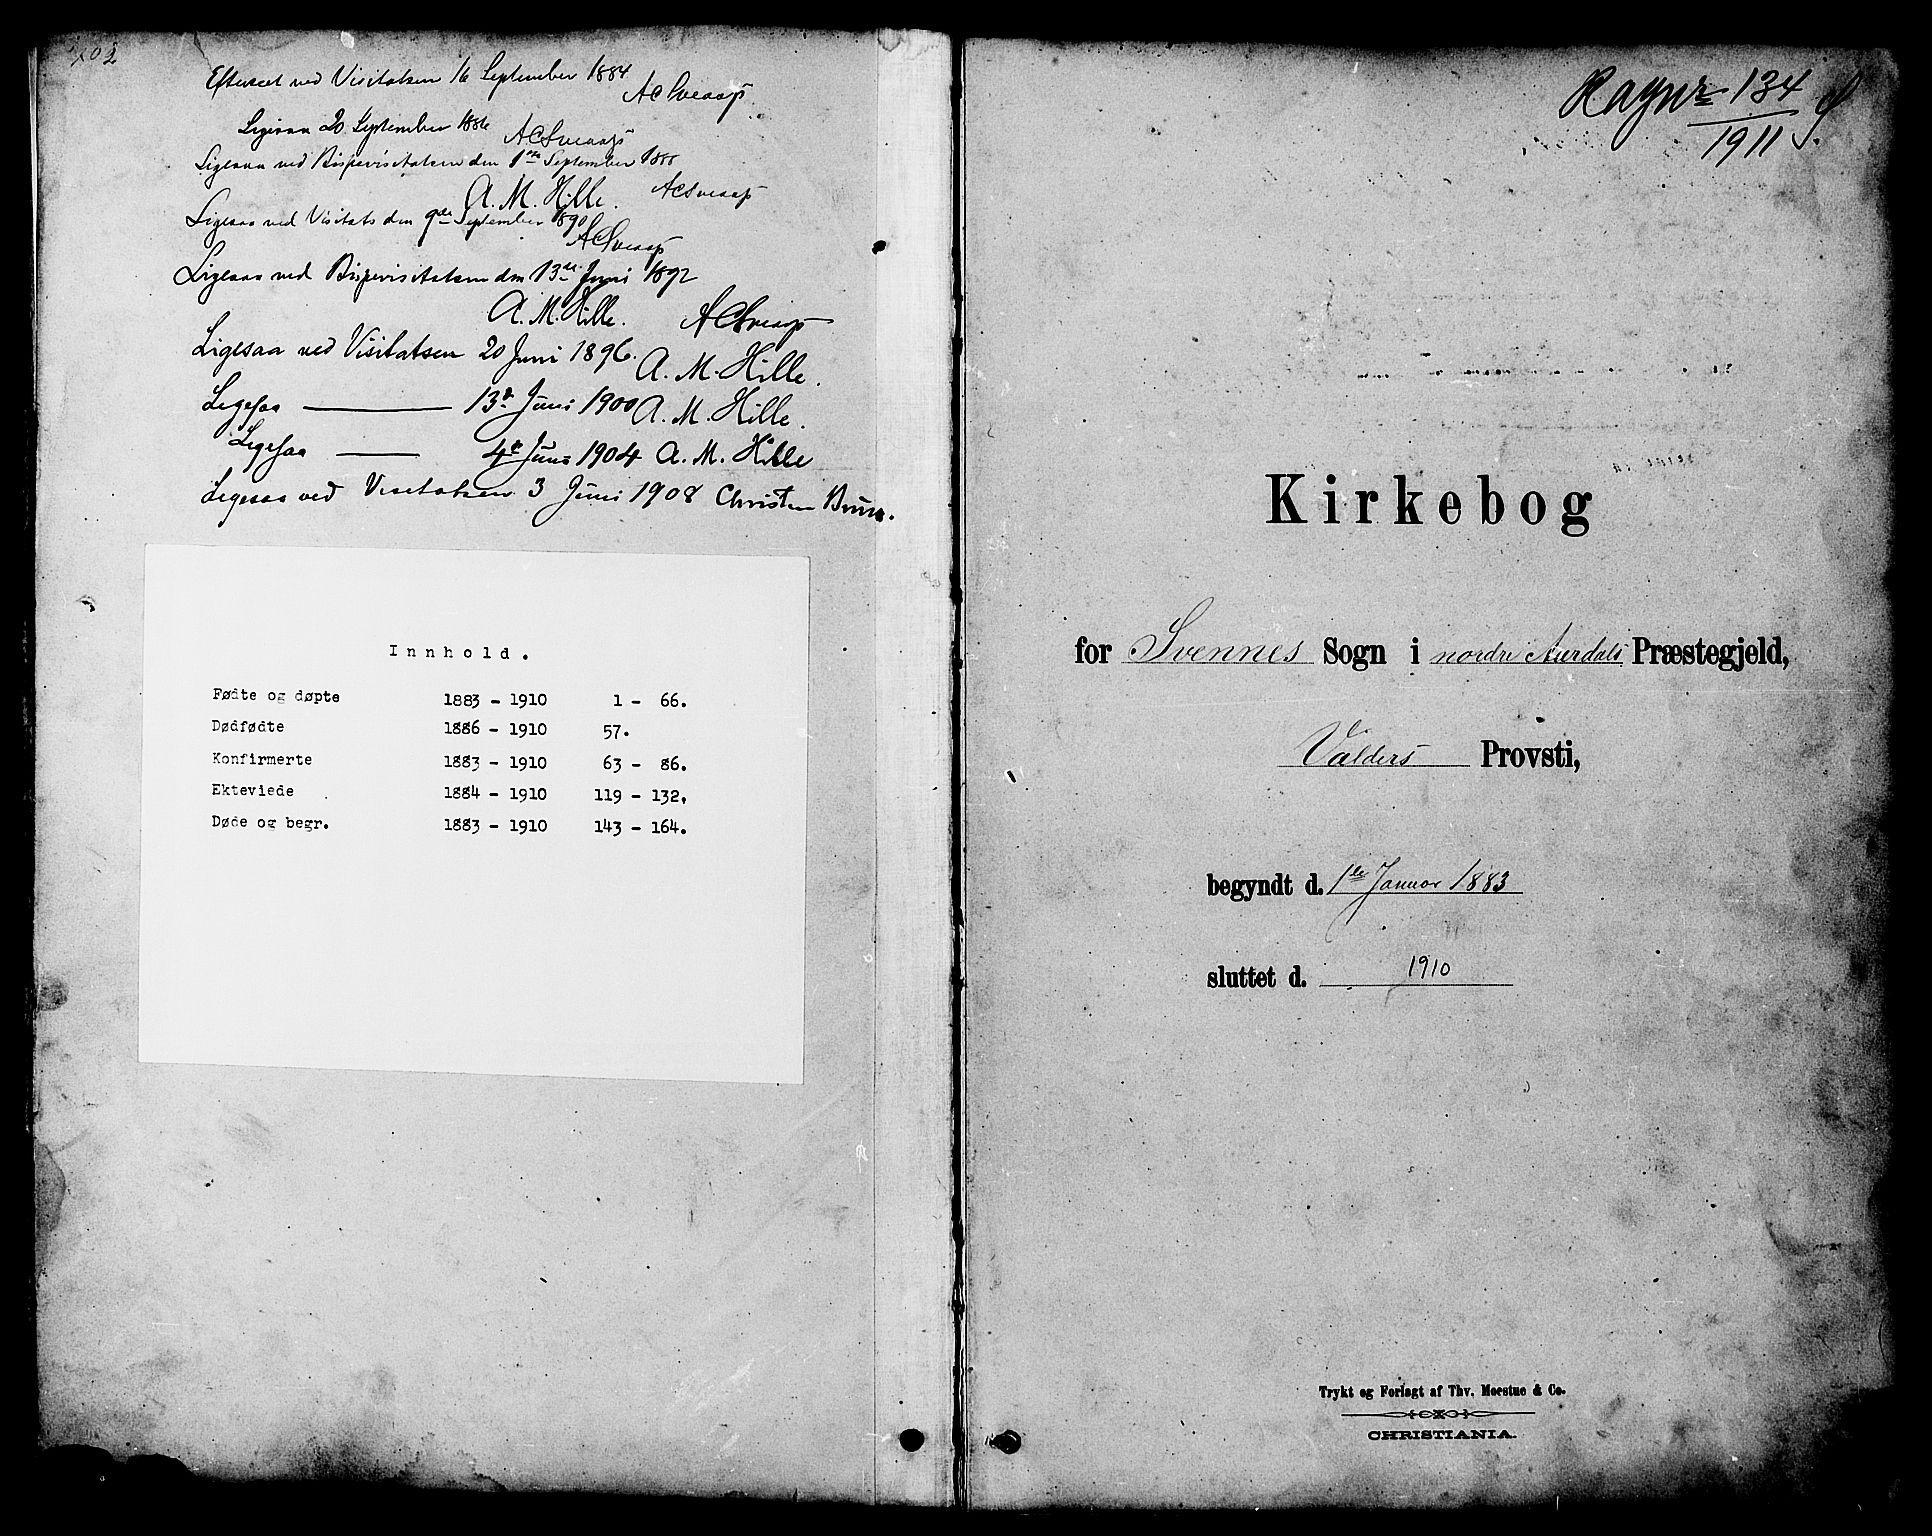 702
Efterseet ved Visitatsen 16 September 1884
AC Sveaas
Ligesaa 20 September 1886 AC Sveaas
Ligesaa ved Bispevisitatsen den 1ste September 1888
A. M. Hille. AC Sveaas
Ligesaa ved Visitats den 9de September 1890
AC Sveaas
Ligesaa ved Bispevisitatsen den 13de Juni 1892
A. M. Hille. AC Sveaas
Ligesaa ved Visitatsen 20 Juni 1896. A. M. Hille.
Ligesaa — 13de Juni 1900 A. M. Hille.
Ligesaa — 4de Juni 1904 A. M. Hille
Ligesaa ved Visitatsen 3 Juni 1908 Christen Brun.
Innhold.
Fødte og døpte 1883 - 1910 1 - 66.
Dødfødte 1886 - 1910 57.
Konfirmerte 1883 - 1910 63 - 86.
Ekteviede 1884 - 1910 119 - 132.
Døde og begr. 1883 - 1910 143 - 164.
134
1911
Kirkebog
for Svennes Sogn i nordre Aurdals Præstegjeld,
Valders Provsti,
begyndt d. 1ste Januar 1883
sluttet d. 1910
Trykt og Forlagt af Thv. Moestue & Co.
CHRISTIANIA.